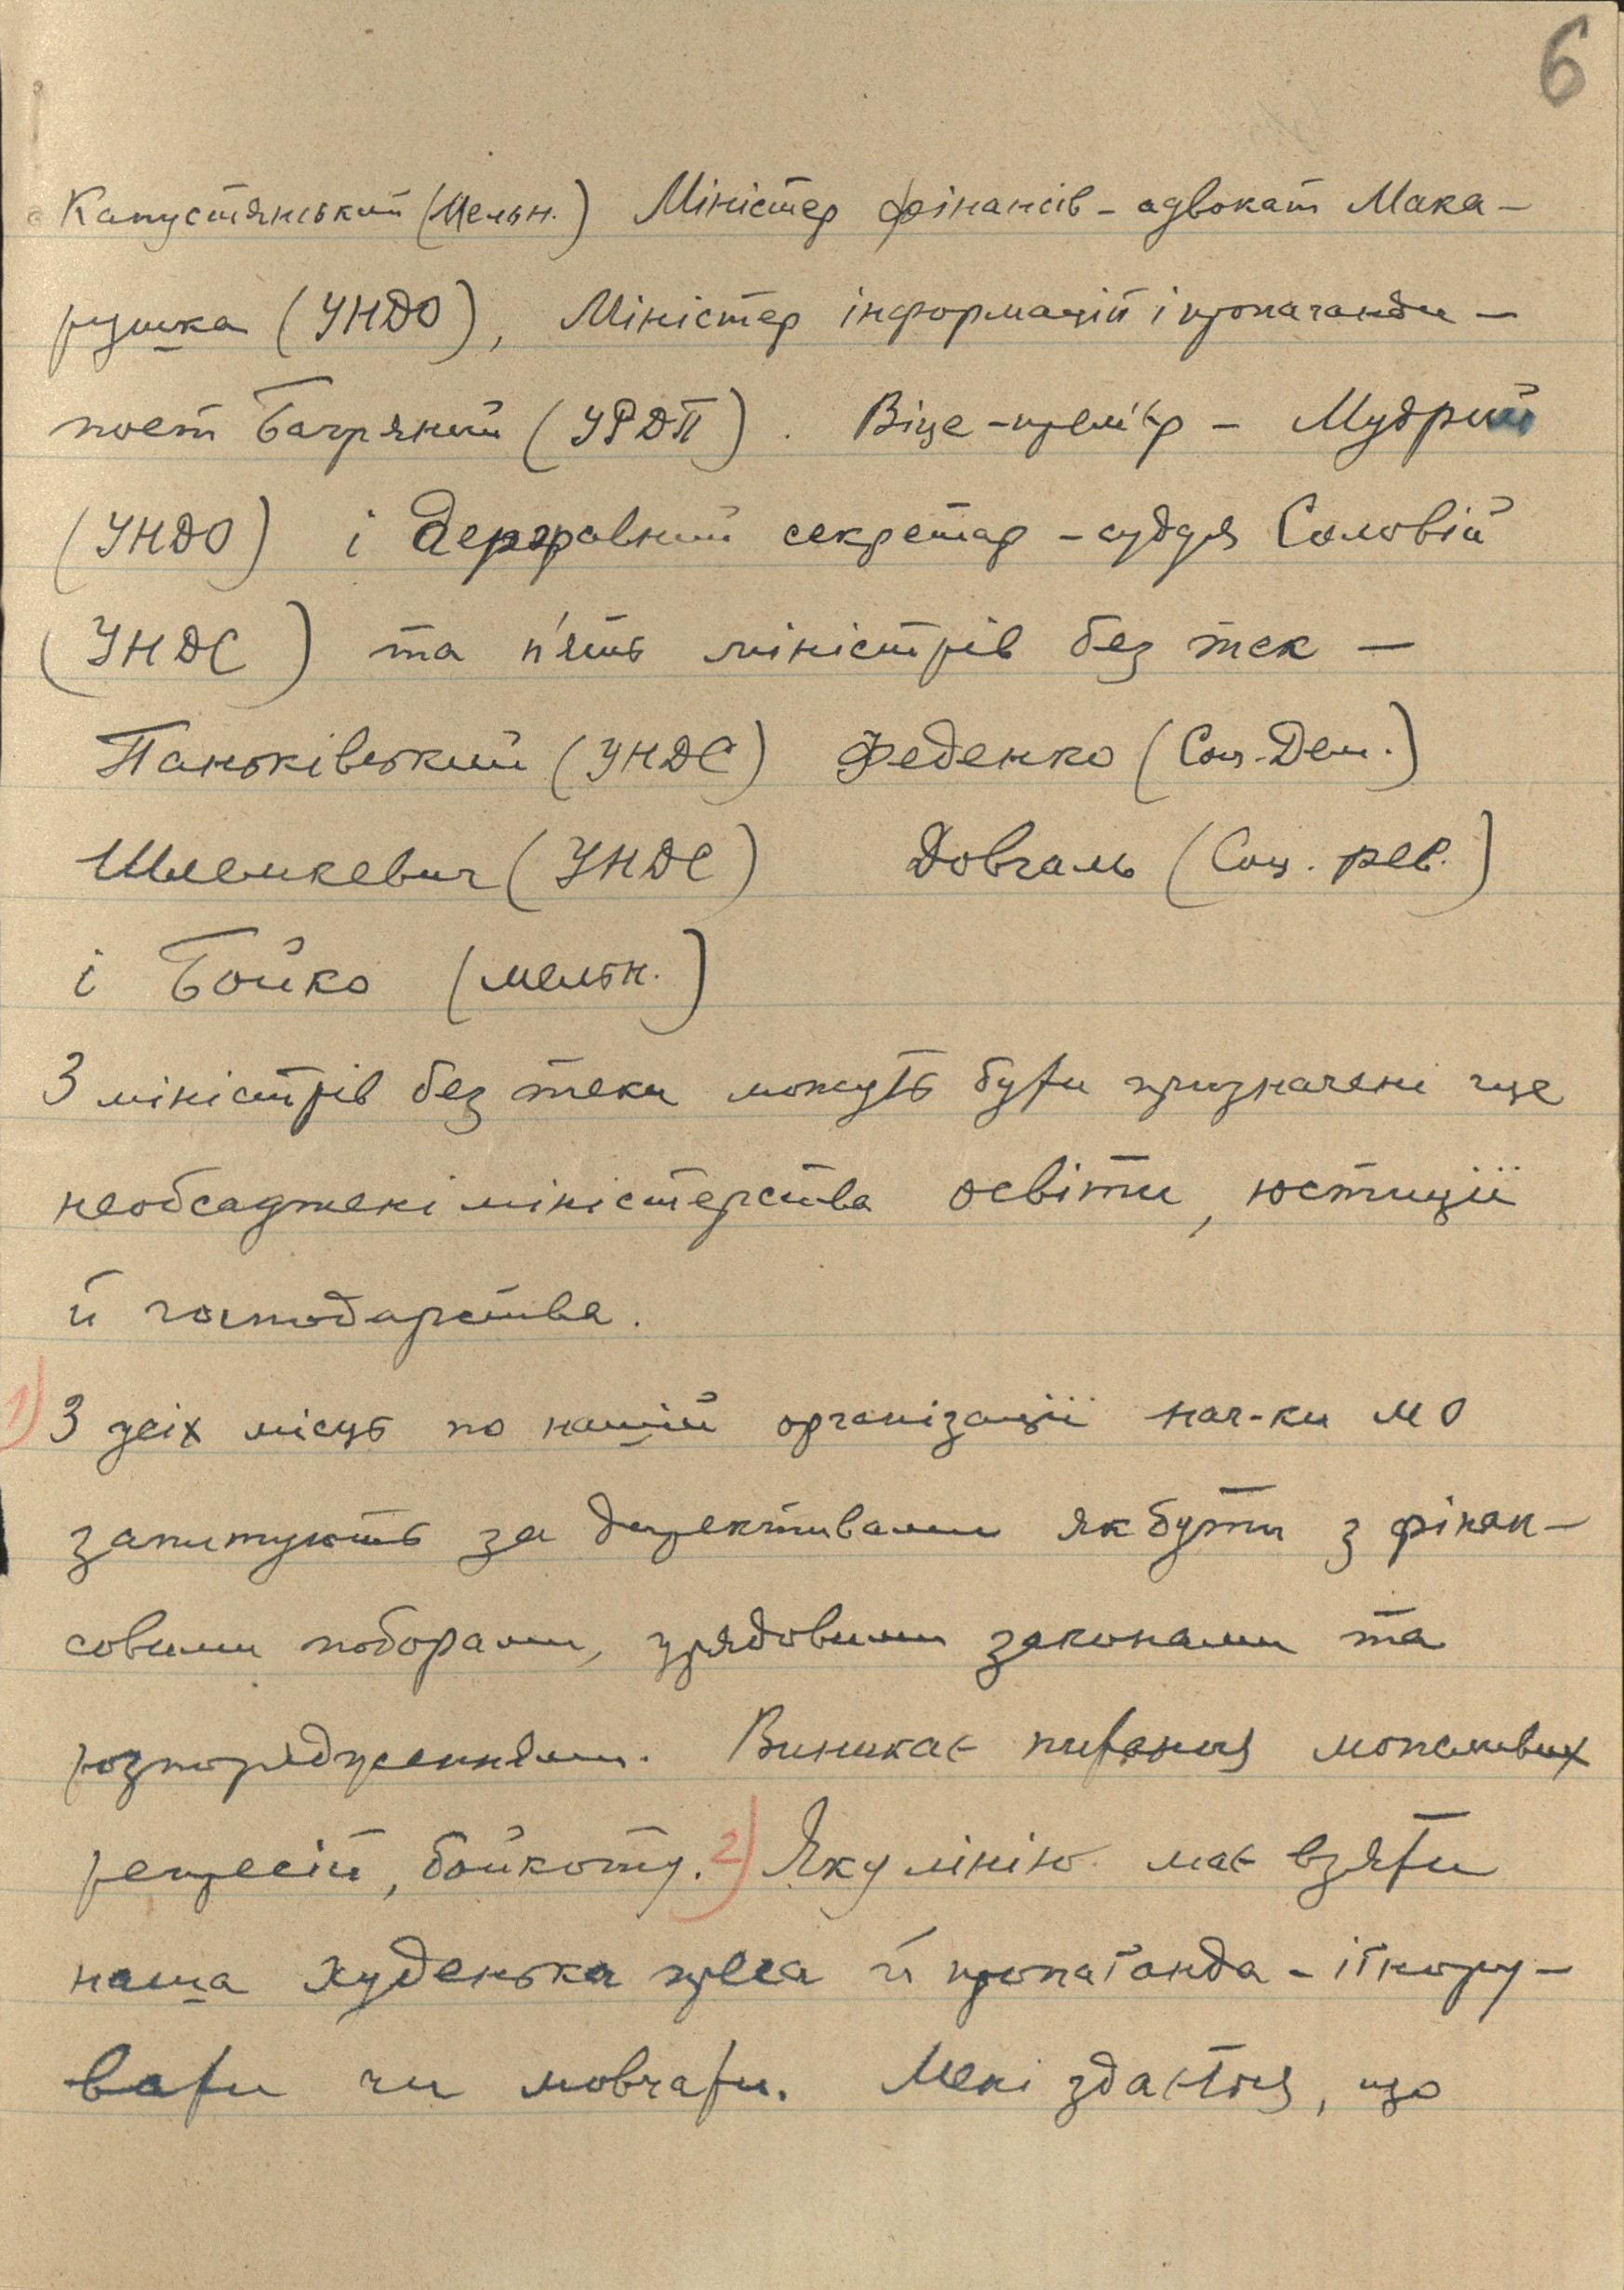 6
Капустянський (Мельн.) Міністер фінансів – адвокат Мака-
рушка (УНДО), Міністер інформацій і пропаганди –
поет Багряний (УРДП). Віце-прем'єр – Мудрий
(УНДО) і державний секретар – суддя Соловій
(УНДС) та п'ять міністрів без тек –
Паньківський (УНДС) Феденко (Соц-Дем.)
Шлемкевич (УНДС) Довгаль (Соц. рев.)
і Бойко (мельн.)
З міністрів без теки можуть бути призначені ще
необсаджені міністерства освіти, юстиції
й господарства.
1) З усіх місць по нашій організації нач-ки МО
запитують за директивами як бути з фінан-
совими поборами, урядовими законами та
розпорядженнями. Виникає питання можливих
репресій, бойкоту. 2) Яку лінію має взяти
наша худенька преса й пропаґанда – іґнору-
вати чи мовчати. Мені здається, що